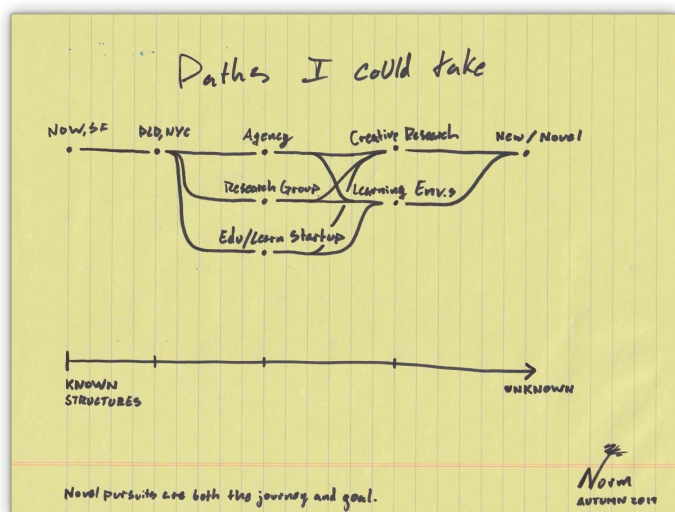 Paths I could take
NOW, SF
PLD, NYC
Agency
Creative Research
New/Novel
Research Group
Learning Env.s
Edu/Learn Startup
KNOWN
STRUCTURES
UNKNOWN
Novel pursuits are both the journey and goal.
Norm
AUTUMN 2019